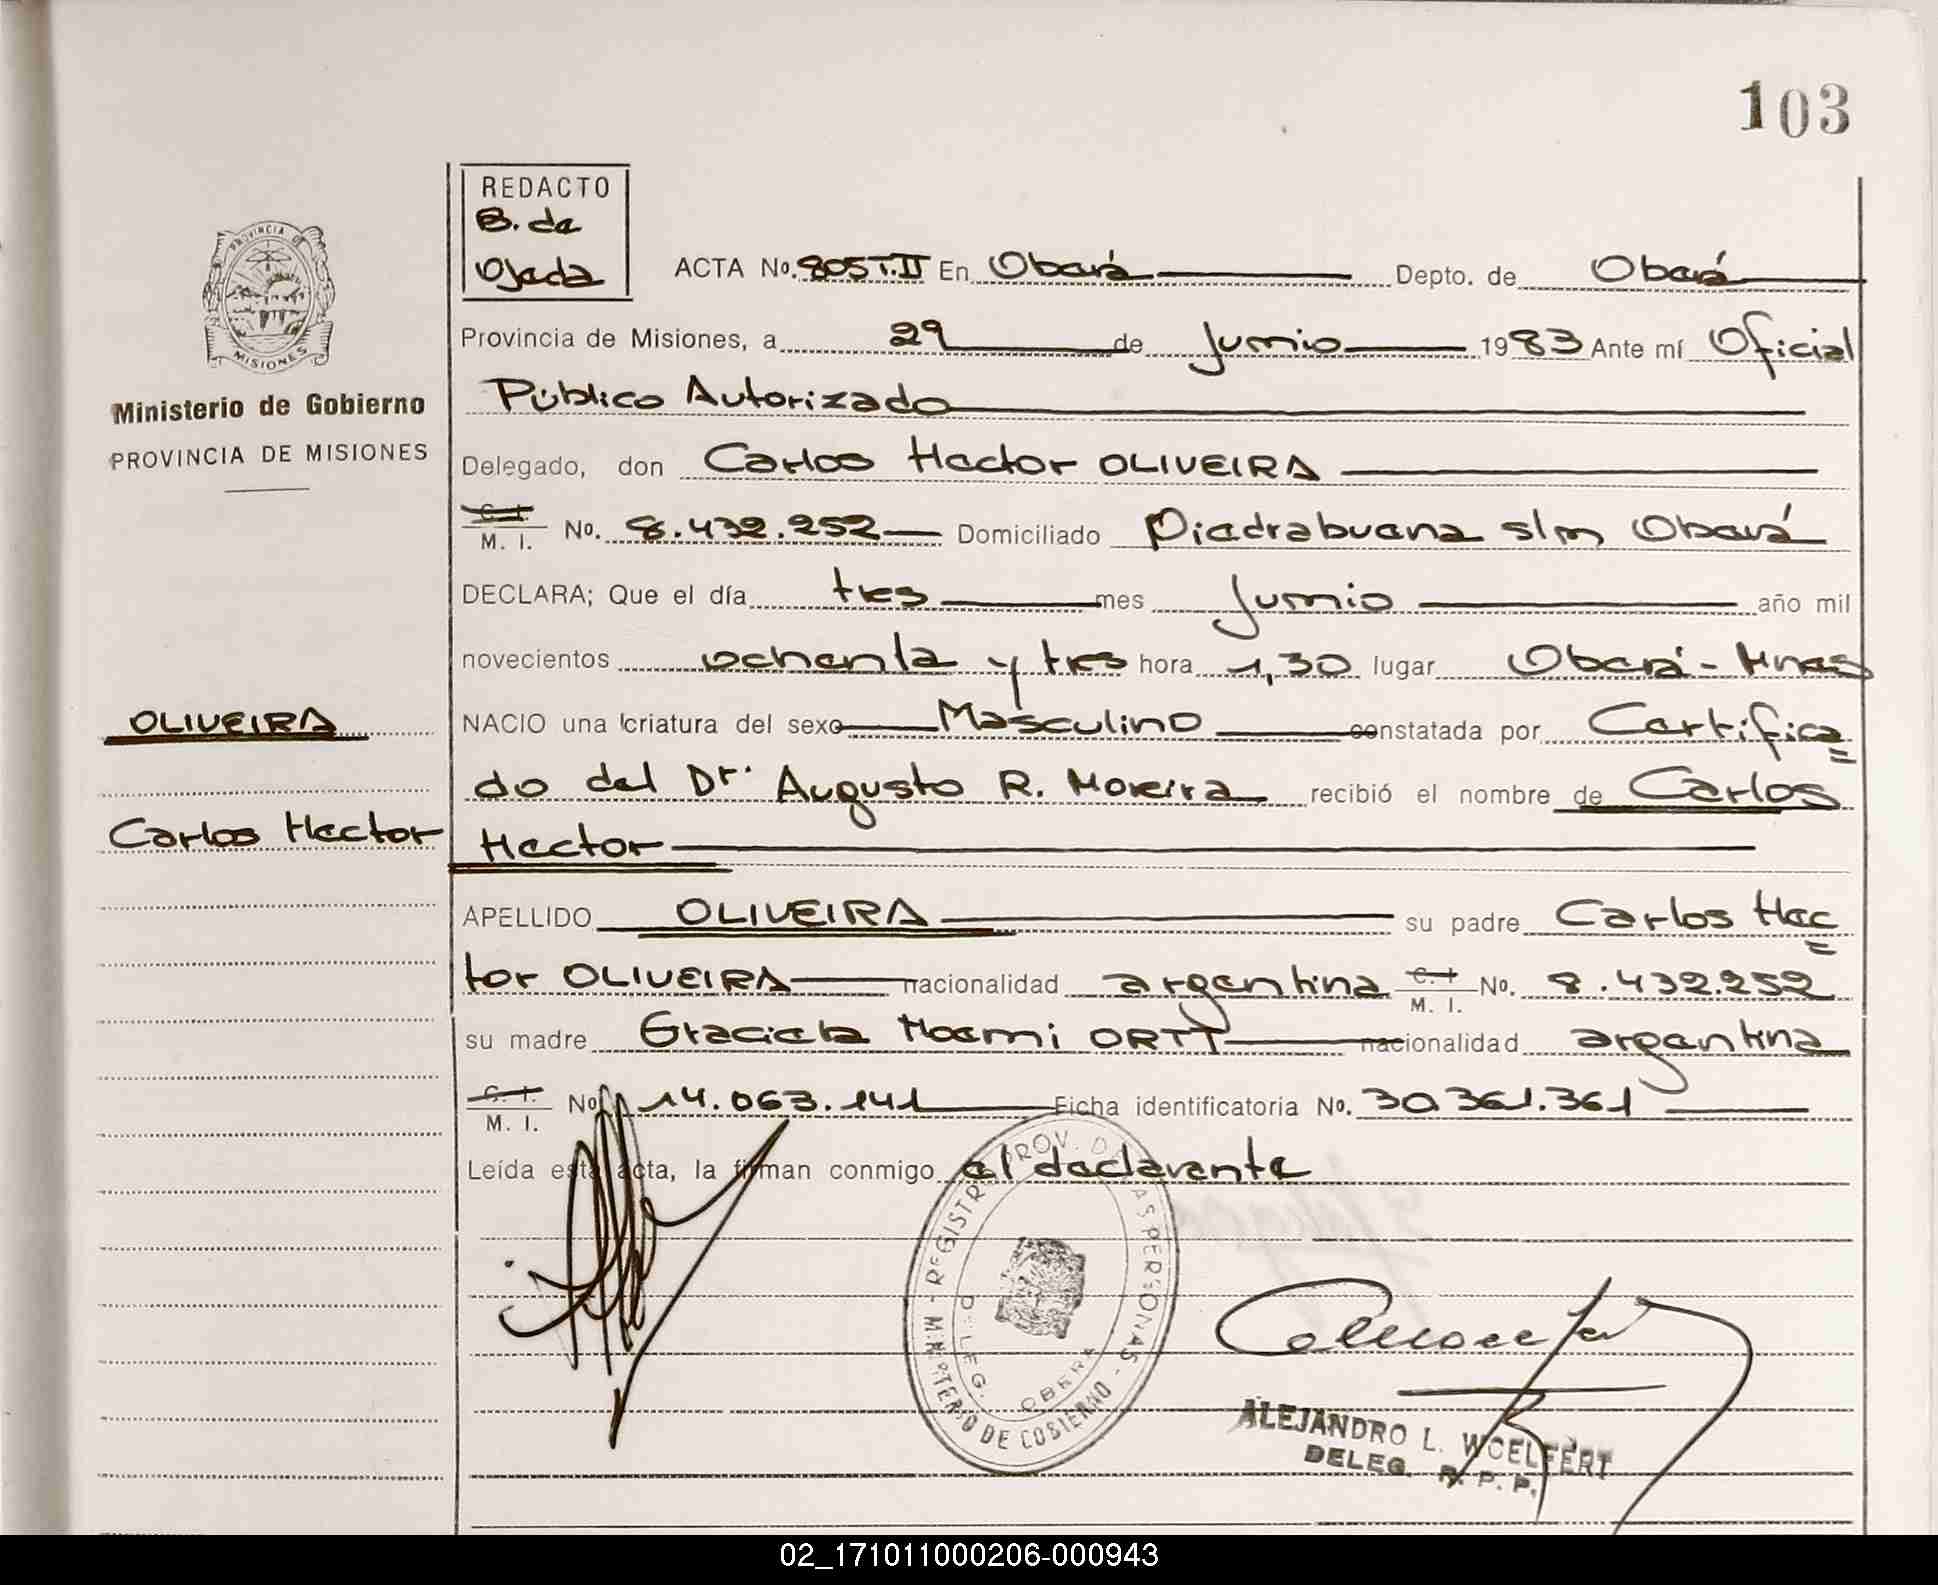 103
REDACTO
B. de
Ojeda
ACTA No. 805 T.II En Oberá Depto. de Oberá
PROVINCIA DE
MISIONES
Provincia de Misiones, a 29 de Junio 1983 Ante mí Oficial
Ministerio de Gobierno
Público Autorizado
PROVINCIA DE MISIONES
Delegado, don Carlos Hector OLIVEIRA
C. I. M. I. No. 8.432.252 Domiciliado Piedrabuena s/n Oberá
DECLARA; Que el día tres mes Junio año mil
novecientos ochenta y tres hora 1,30 lugar Oberá - Mnes
OLIVEIRA
NACIO una criatura del sexo Masculino constatada por Certifica=
do del Dr. Augusto R. Moreira recibió el nombre de Carlos
Carlos Hector
Hector
APELLIDO OLIVEIRA su padre Carlos Hec=
tor OLIVEIRA nacionalidad argentina C. I. M. I. No. 8.432.252
su madre Graciela Noemi ORTT nacionalidad argentina
C. I. M. I. No. 14.063.141 Ficha identificatoria No. 30.361.361
Leída esta acta, la firman conmigo el declarante
REGISTR PROV. D AS PERSONAS - MINISTERIO DE GOBIERNO -
DELEG. OBERA
ALEJANDRO L. WOELFERT
DELEG. R. P. P.
02_171011000206-000943